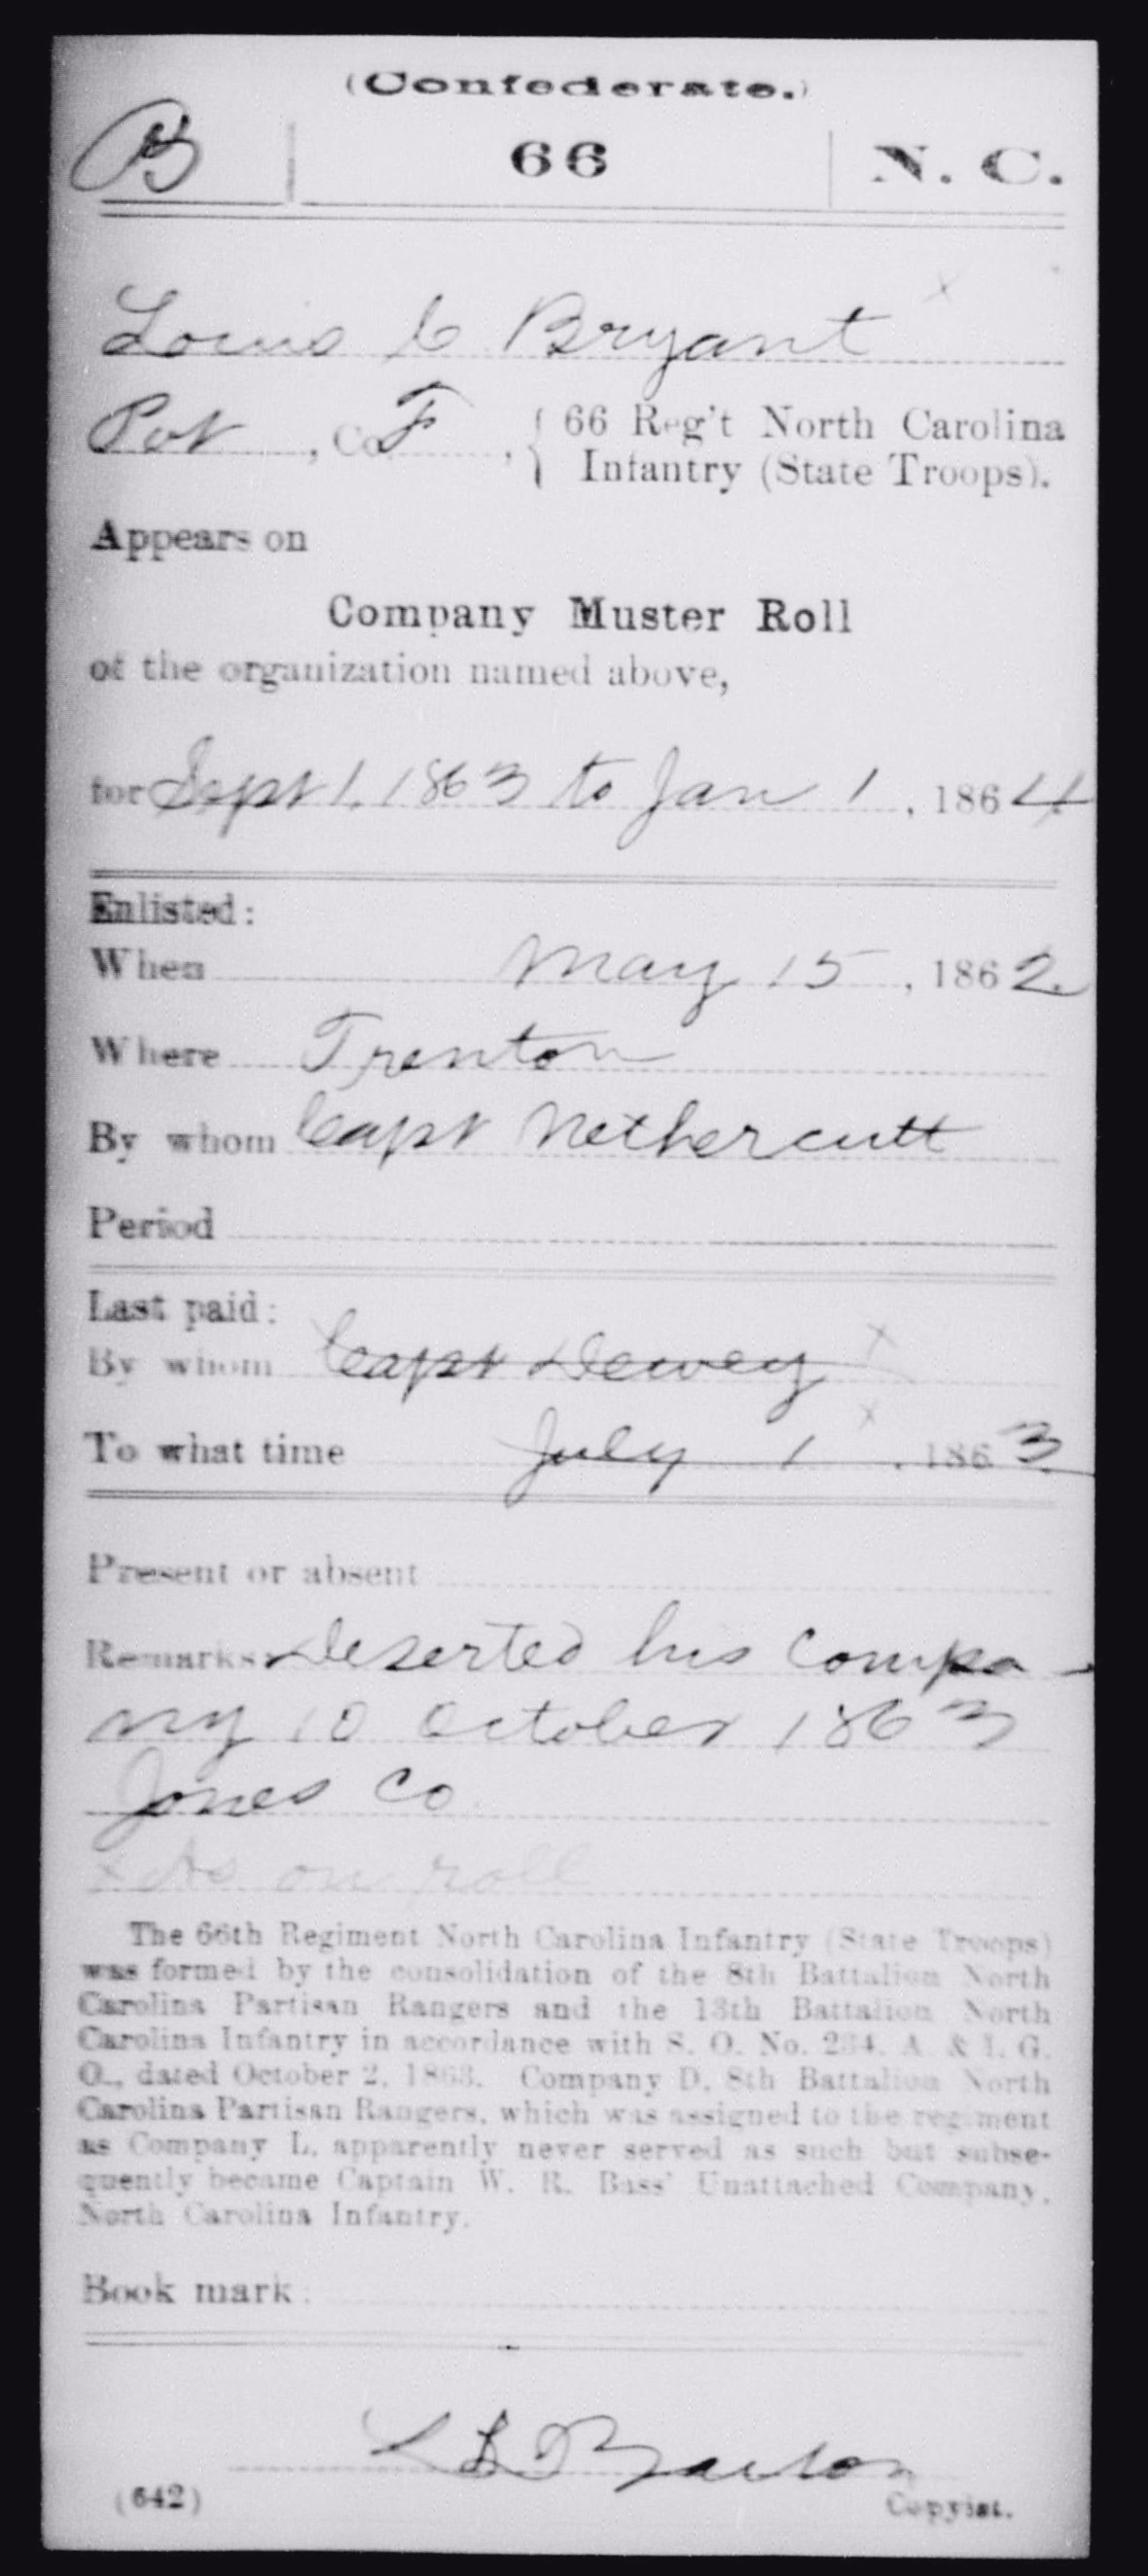 (Confederate.)
B 66 N. C.
Louis C Bryant x
Pvt, Co. F, { 66 Reg't North Carolina
Infantry (State Troops).
Appears on
Company Muster Roll
of the organization named above,
for Sept 1, 1863 to Jan 1, 1864
Enlisted:
When May 15, 1862
Where Trenton
By whom Capt Nethercutt
Period
Last paid:
By whom Capt Dewey x
To what time July 1 x, 1863
Present or absent
Remarks: Deserted his Compa-
ny 10 October 1863
Jones Co
x As on roll
The 66th Regiment North Carolina Infantry (State Troops)
was formed by the consolidation of the 8th Battalion North
Carolina Partisan Rangers and the 13th Battalion North
Carolina Infantry in accordance with S. O. No. 234, A. & I. G.
O., dated October 2, 1863. Company D, 8th Battalion North
Carolina Partisan Rangers, which was assigned to the regiment
as Company L, apparently never served as such but subse-
quently became Captain W. R. Bass' Unattached Company,
North Carolina Infantry.
Book mark:
(642) Copyist.